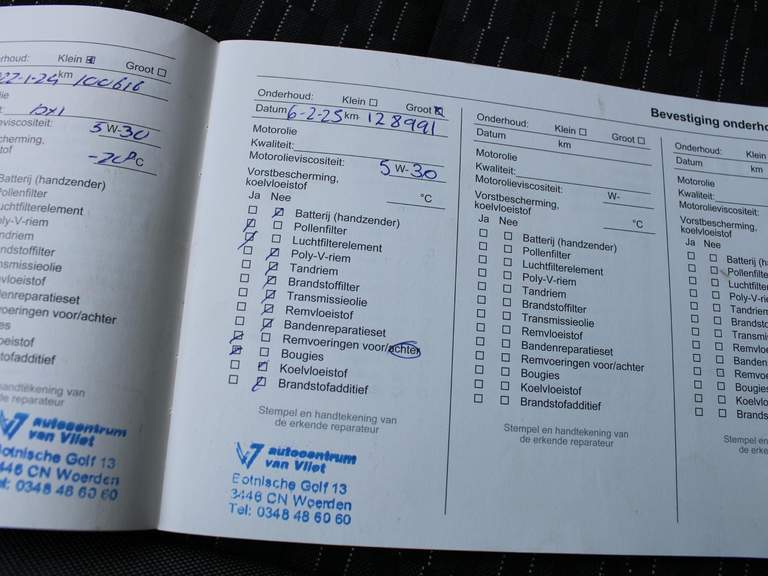 rhoud: Klein Groot
22-1-24 km 100616
eviscositeit: 5W-30
cherming,
-28°C
Batterij (handzender)
Pollenfilter
uchtfilterelement
oly-V-riem
andriem
andstoffilter
nsmissieolie
vloeistof
ndenreparatieset
voeringen voor/achter
es
oeistof
tofadditief
handtekening van
de reparateur
autocentrum
van Vliet
otnische Golf 13
446 CN Woerden
el: 0348 48 60 60
Onderhoud: Klein Groot
Datum 6-2-25 km 128991
Motorolie
Kwaliteit:
Motorolieviscositeit: 5W-30
Vorstbescherming,
koelvloeistof °C
Ja Nee
Batterij (handzender)
Pollenfilter
Luchtfilterelement
Poly-V-riem
Tandriem
Brandstoffilter
Transmissieolie
Remvloeistof
Bandenreparatieset
Remvoeringen voor/achter
Bougies
Koelvloeistof
Brandstofadditief
Stempel en handtekening van
de erkende reparateur
autocentrum
van Vliet
Botnische Golf 13
3446 CN Woerden
Tel: 0348 48 60 60
Onderhoud: Klein Groot
Datum km
Motorolie
Kwaliteit:
Motorolieviscositeit: W-
Vorstbescherming,
koelvloeistof °C
Ja Nee
Batterij (handzender)
Pollenfilter
Luchtfilterelement
Poly-V-riem
Tandriem
Brandstoffilter
Transmissieolie
Remvloeistof
Bandenreparatieset
Remvoeringen voor/achter
Bougies
Koelvloeistof
Brandstofadditief
Stempel en handtekening van
de erkende reparateur
Bevestiging onderho
Onderhoud: Klein
Datum km
Motorolie
Kwaliteit:
Motorolieviscositeit:
Vorstbescherming,
koelvloeistof
Ja Nee
Batterij (h
Pollenfilter
Luchtfilter
Poly-V-rie
Tandriem
Brandsto
Transmi
Remvloe
Banden
Remvoe
Bougies
Koelvlo
Brands
Stempel en
de erk